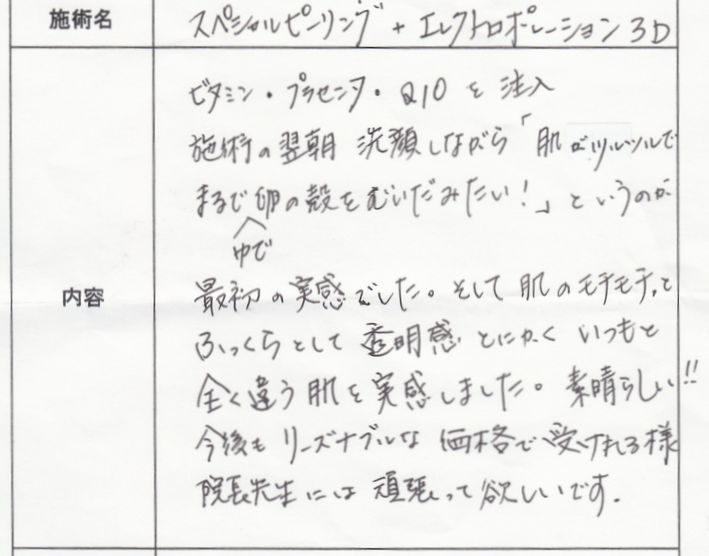 施術名
スペシャルピーリング + エレクトロポレーション 3D
内容
ビタミン・プラセンタ・Q10 を 注入
施術の翌朝 洗顔しながら「肌がツルツルで
まるで卵の殻をむいだみたい!」というのが
ゆで
最初の実感でした。そして 肌のモチモチッと
ふっくらとして 透明感 とにかく いつもと
全く違う肌を実感しました。素晴らしい!!
今後も リーズナブルな 価格で受けれる様
院長先生には 頑張って欲しいです.